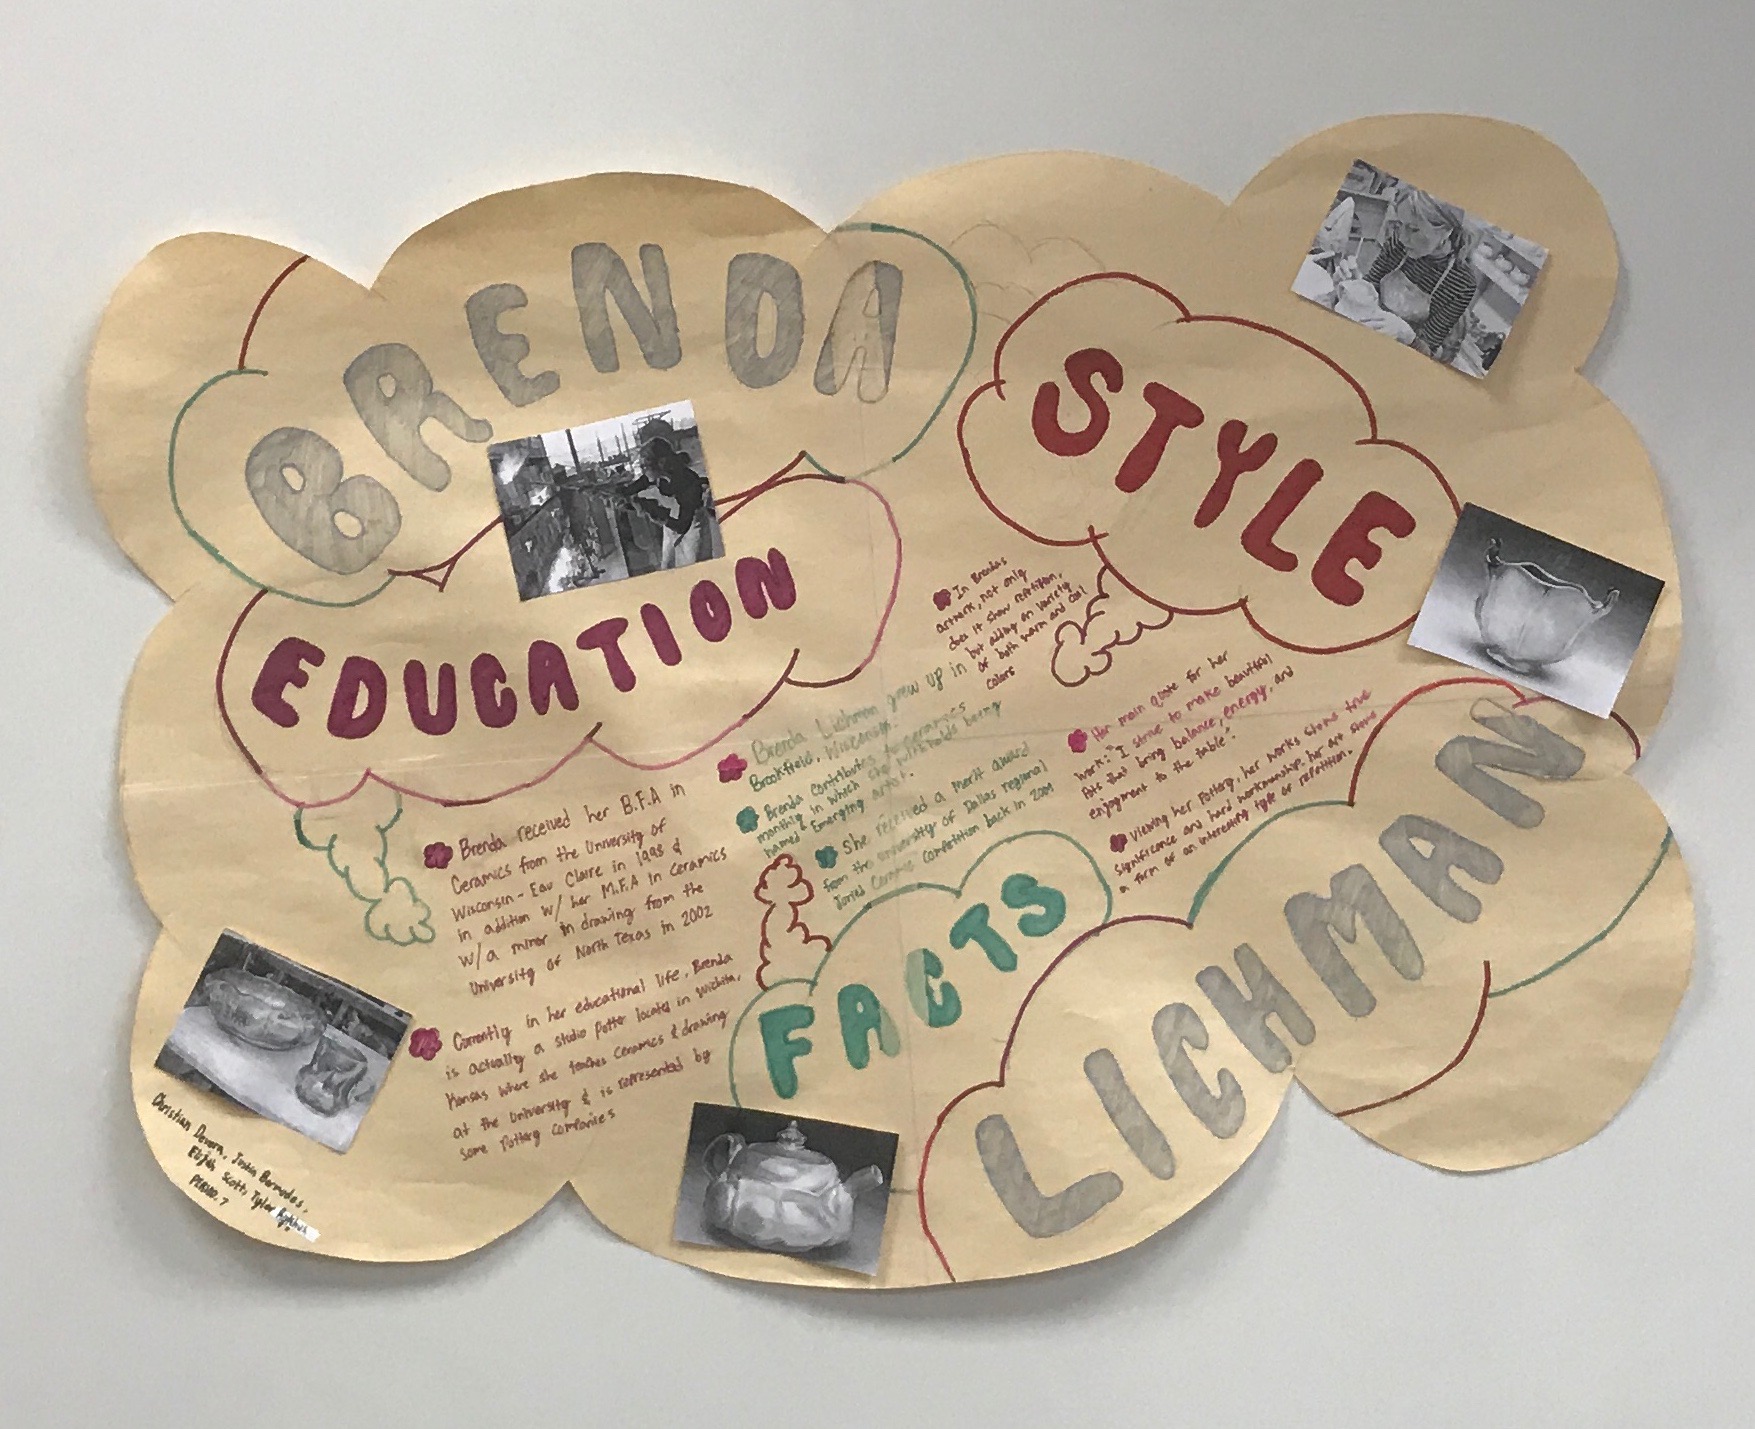 BRENDA
EDUCATION
Brenda received her B.F.A in
Ceramics from the University of
Wisconsin-Eau Claire in 1998 &
in addition w/ her M.F.A in Ceramics
w/a minor in drawing from the
University of North Texas in 2002
Currently in her educational life, Brenda
is actually a studio potter located in Wichita,
Kansas where she teaches ceramics & drawing
at the University & is represented by
some Pottery companies
STYLE
In Brendas
artwork, not only
does it show repetition,
but adding on variety
of both warm and cool
colors
Her main quote for her
work: "I strive to make beautiful
Pots that bring balance, energy, and
enjoyment to the table".
Viewing her Pottery, her works shows true
significance and hard workmanship. her art shows
a form of an interesting type of repetition.
Brenda Lichman grew up in
Brookfield, Wisconsin.
Brenda contributes to ceramics
monthly in which she publishes being
named Emerging artist.
She received a Merit award
from the University of Dallas regional
Juried Ceramic Competition back in 2001
FACTS
LICHMAN
Christian Devern, Justin Bermudes,
Elijah Scott, Tyler
PERIOD. 7